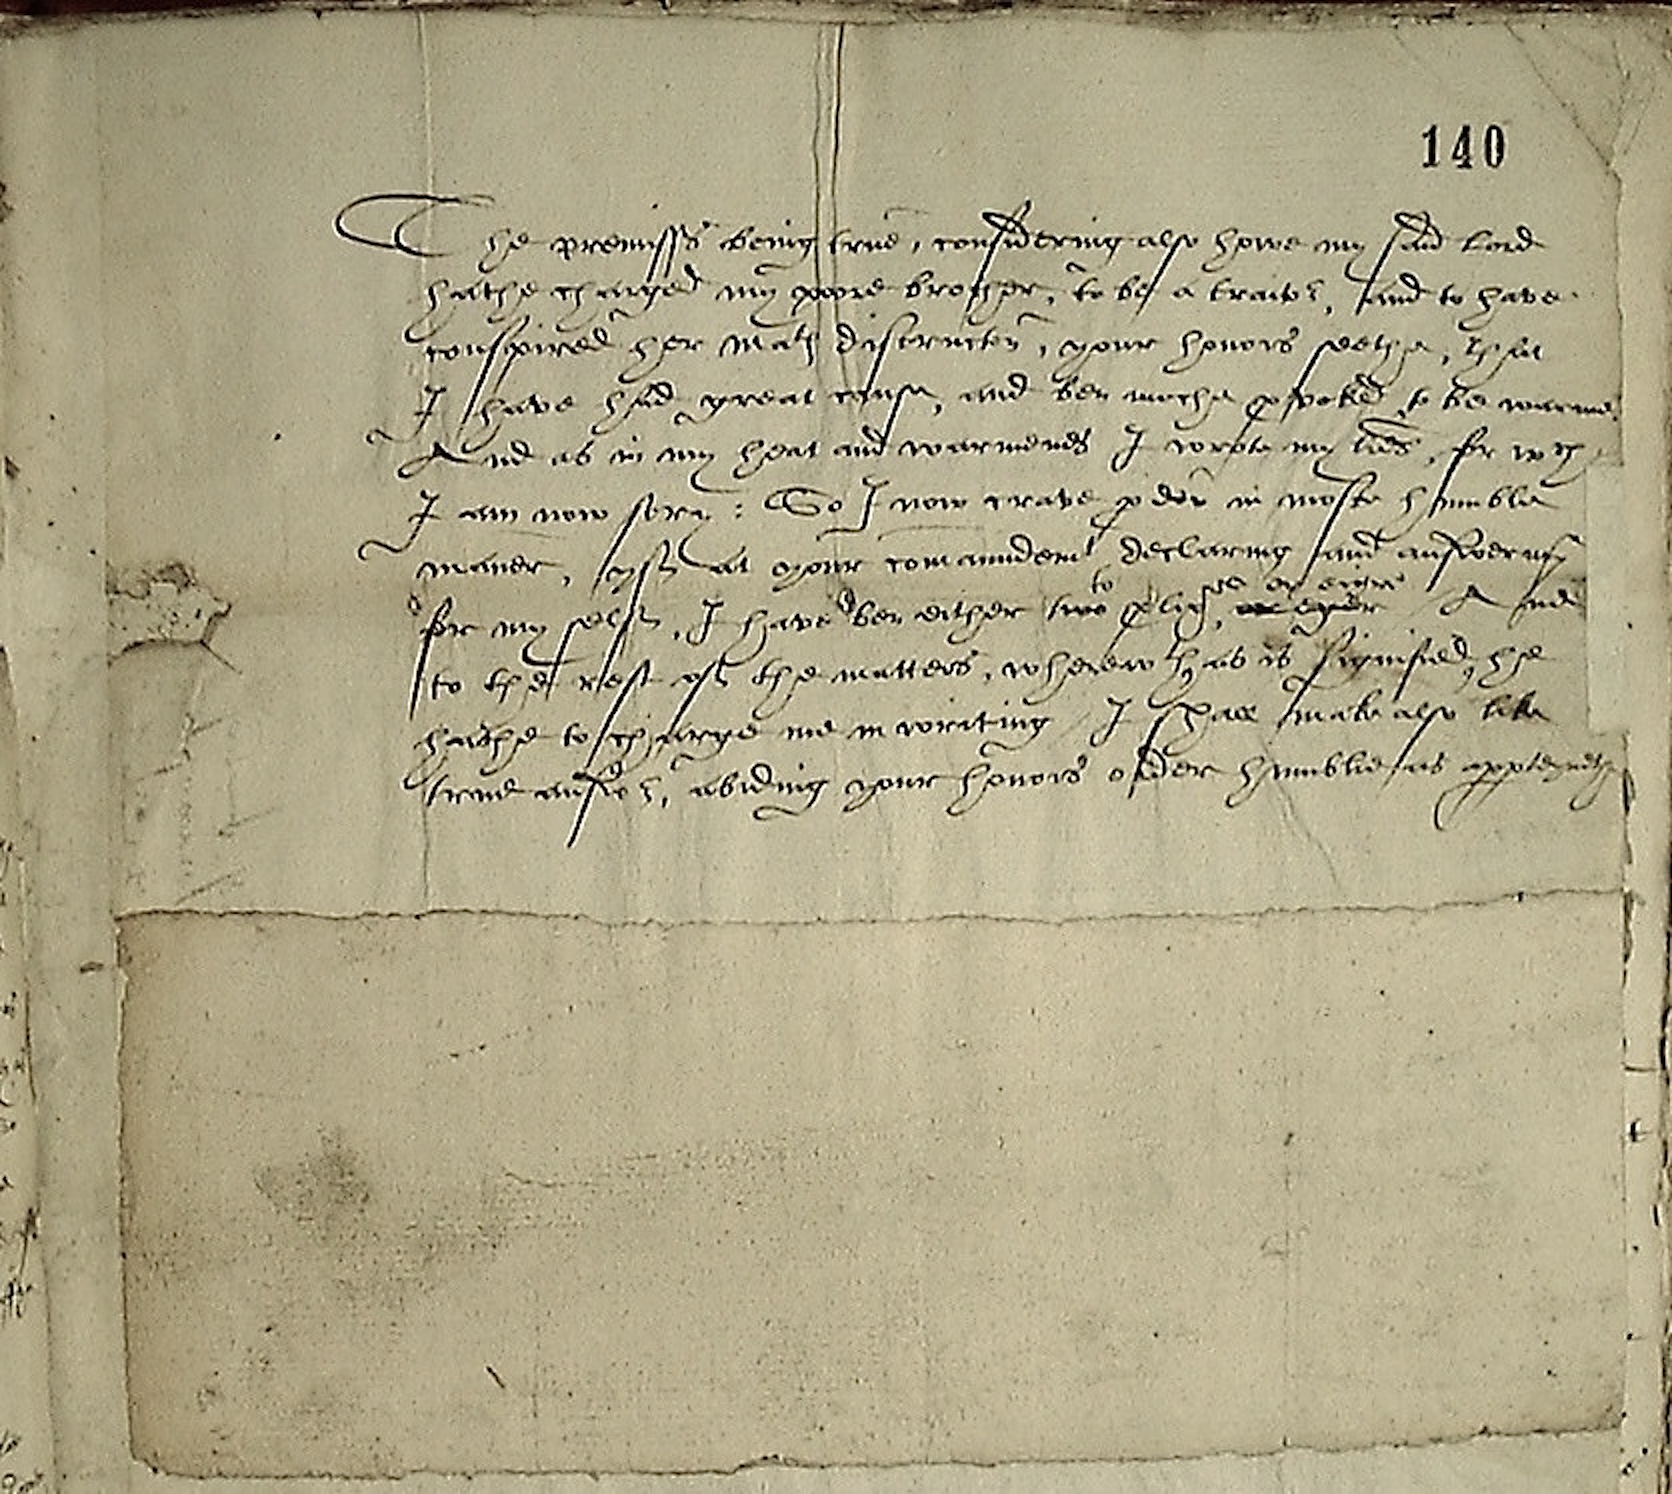 140
The premisses being true, considering also howe my said Lord
hathe charged my poore brother, to be a traitor, and to have
conspired her Mats distructon, your honors seethe, that
I have had great cause, and ben moche provoked to be warme.
And as in my heat and warmenes I wrote my lres, for wch
I am now sory: So I now crave pdon in moste humble
maner, yf at your comaundemt declaring and answering
for my self, I have ben either two to plig, or eigre And
to the rest of the matters, wherewth as is signified, he
hathe to charge me in writing I shall make also like
true answer, abiding your honors order humblie as apptegneth